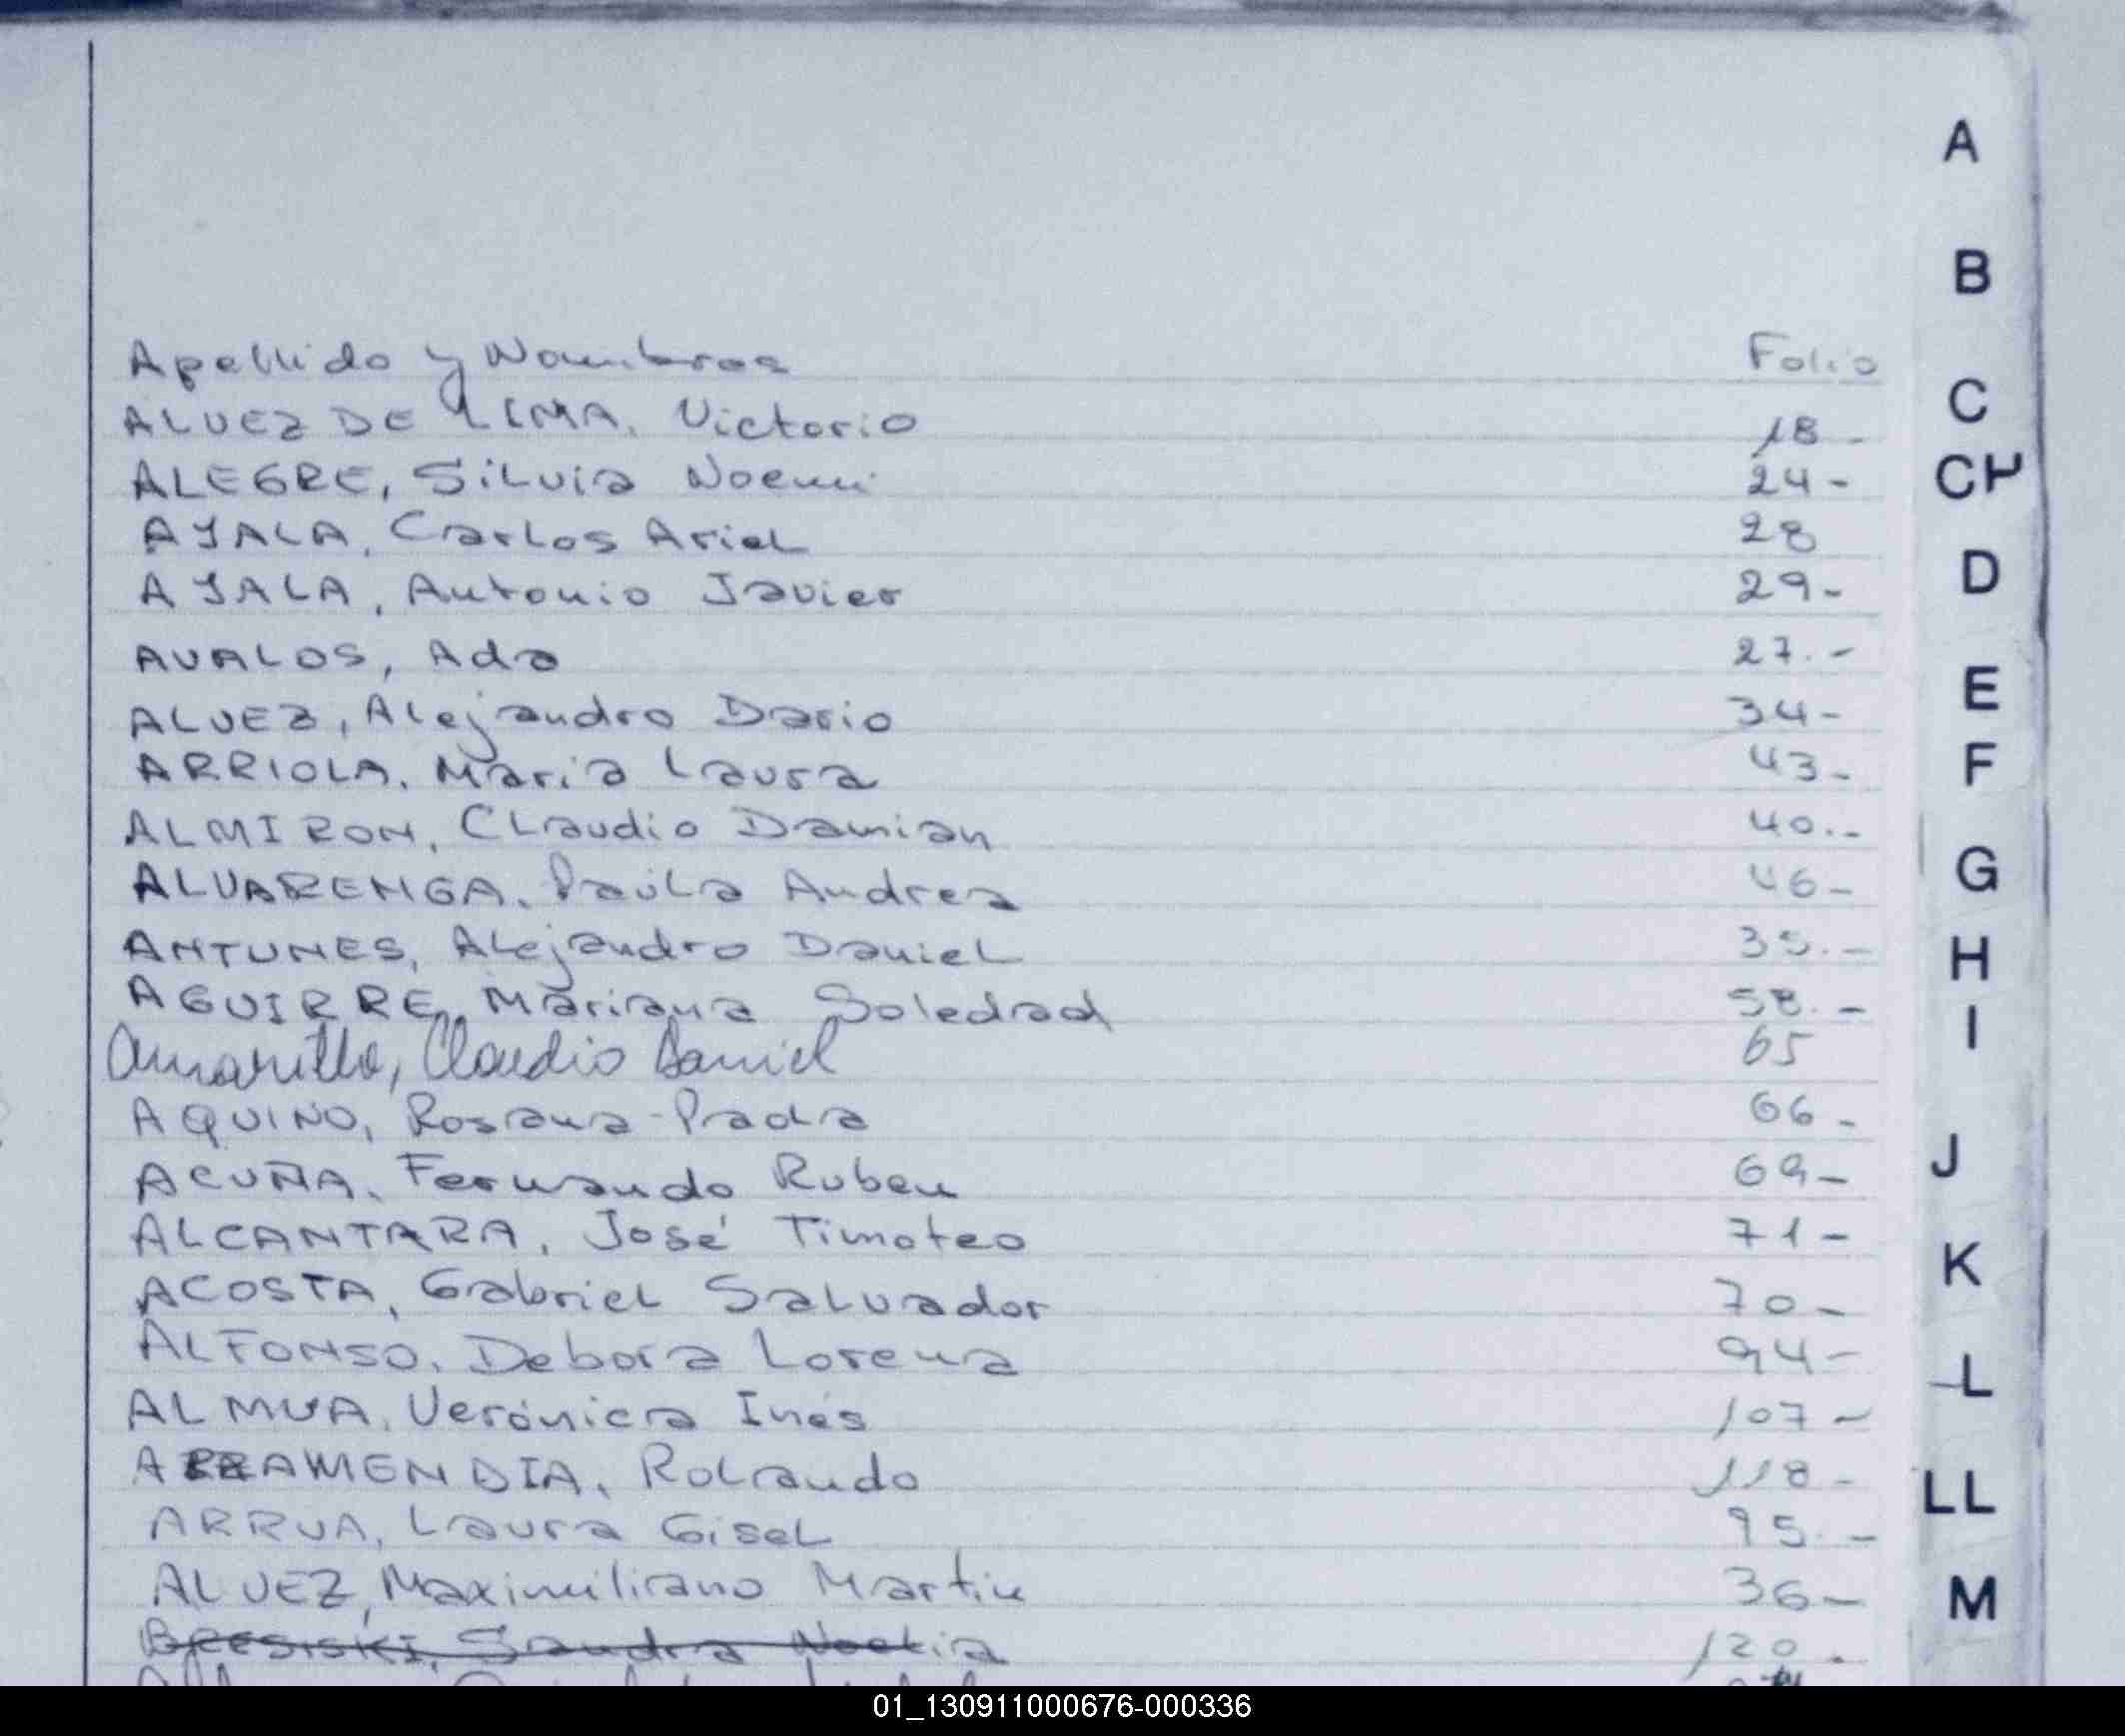 A
B
C
CH
D
E
F
G
H
I
J
K
L
LL
M
Apellido y Nombres Folio
ALVEZ DE LIMA, Victorio 18-
ALEGRE, Silvia Noemi 24-
AYALA, Carlos Ariel 28
AYALA, Antonio Javier 29-
AVALOS, Ada 27.-
ALVEZ, Alejandro Dario 34-
ARRIOLA, Maria Laura 43-
ALMIRON, Claudio Damian 40.-
ALVARENGA, Paula Andrea 46-
ANTUNES, Alejandro Daniel 35.-
AGUIRRE, Mariana Soledad 58.-
Amarilla, Claudio Daniel 65
AQUINO, Rosana Paola 66-
ACUÑA, Fernando Ruben 69-
ALCANTARA, José Timoteo 71-
ACOSTA, Gabriel Salvador 70-
ALFONSO, Debora Lorena 94-
ALMUA, Verónica Inés 107-
ARRAMENDIA, Rolando 118-
ARRUA, Laura Gisel 95.-
ALVEZ, Maximiliano Martin 36-
BRESISKI, Sandra Noelia 120.
01_130911000676-000336